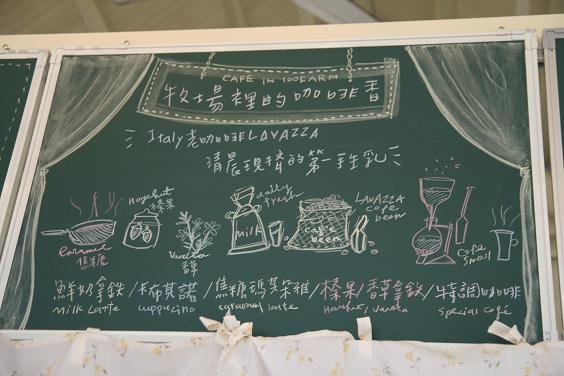 CAFE IN 100FARM
牧場裡的咖啡香
Italy老咖啡LAVAZZA
清晨現擠的第一手生乳
Hazelnut
榛果
caramel
焦糖
Vanilla
milk
daily
fresh
cafe
been
LAVAZZA
cafe
been
cafe
small
鮮奶拿鐵/卡布其諾/焦糖瑪其朵雅/榛果/香草拿鐵/特調咖啡
Milk Latte cuppucino caramel latte Hazelnut/Vanela special cafe